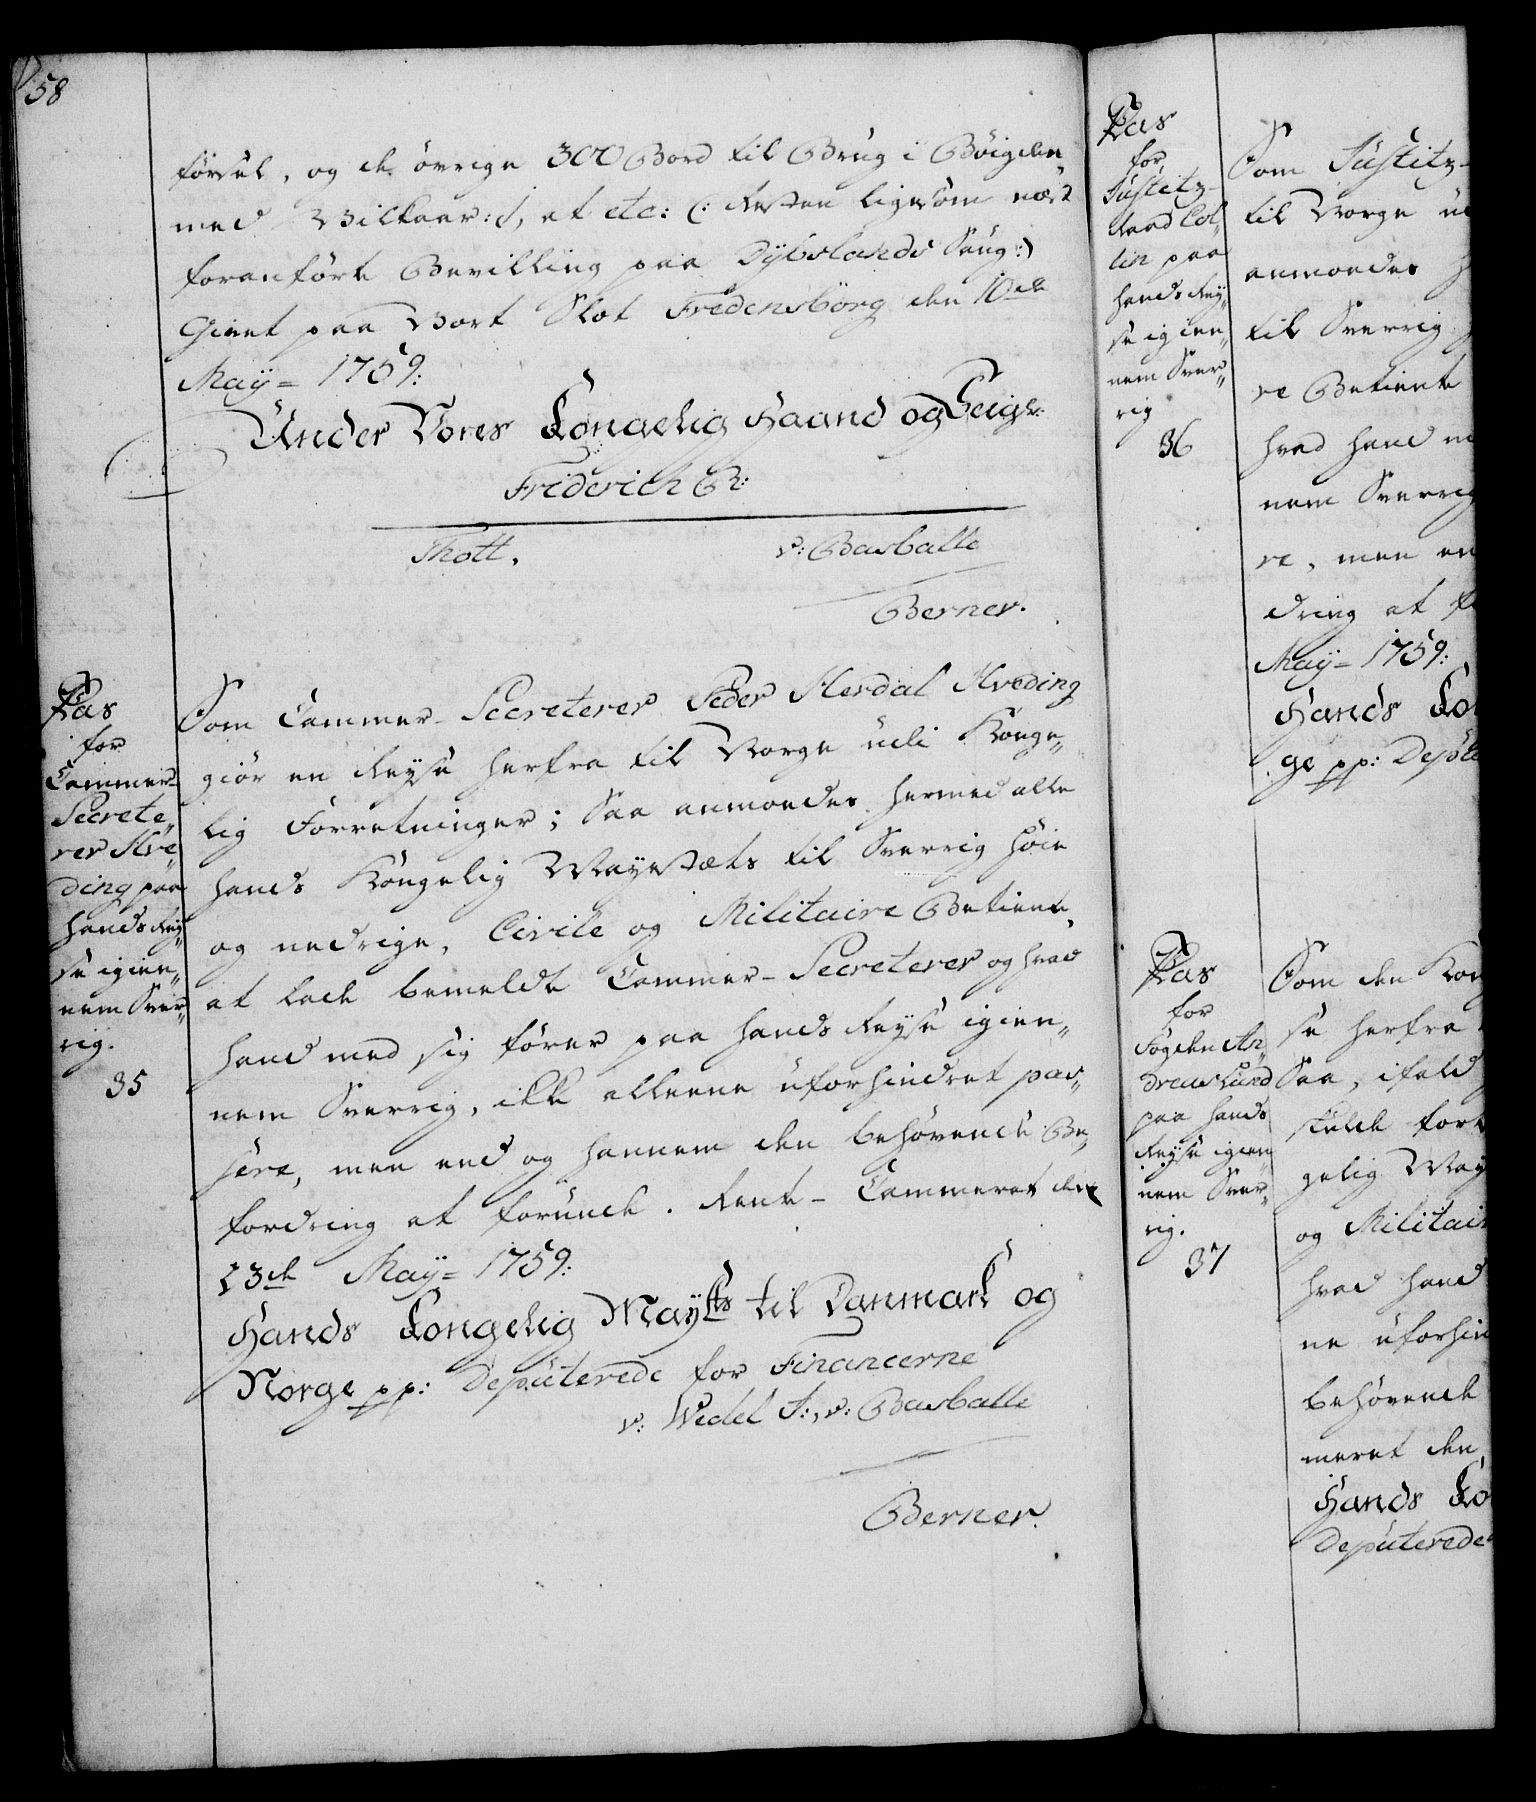 58
førsel, og de øvrige 300 Bord til Brug i Böigden
med Vilkaar: /, at etc: (: Resten ligesom næst
foranførte Bevilling paa Dybslands Saug:)
Givet paa Vort Slot Fredensborg den 10de
May= 1759:
Under Vores Kongelig Haand og Seigl:
Friderich R:
Thott.
v: Basballe
Berner.
Pas
for
Cammer-
Secrete„
rer Hve„
ding paa
hands Rey„
se igien„
nem Sver„
rig.
35
Som Cammer-Secreterer Peder Herdal Hveding
giør en Reyse herfra til Norge udi Konge„
lig Forretninger; Saa anmodes hermed alle
hands Kongelig Mayestæts til Sverrig høie
og nedrige, Civile og Militaire Betiente,
at lade bemeldte Cammer-Secreterer og hvad
hand med sig fører paa hands Reyse igien„
nem Sverrig, ikke alleene uforhindret pas„
sere, men end og hannem den behøvende Be„
fordring at forunde. Rente-Cammeret den
23de May= 1759:
Hands Kongelig Maytts til Danmark og
Norge pp: Deputerede for Financerne
v: Wedel F:, v: Basballe
Berner.
Pas
for
Justitz-
Raad Col„
lin paa
hands Rey„
se igien„
nem Sver„
rig
36
Som Justitz-
til Norge u
anmodes h
til Sverrig
re Betiente
hvad hand m
nem Sverrig
re, men en
dring at f
May= 1759:
Hands Ko
ge pp: Depu
Pas
for
Fogden An„
dreas Lund
paa hands
Reyse igien„
nem Sver„
rig.
37
Som den Kong
se herfra
Saa, ifald
skulde for
gelig May
og Militair
hvad hand
ne uforhin
behøvende
meret den
Hands Ko
Deputerede